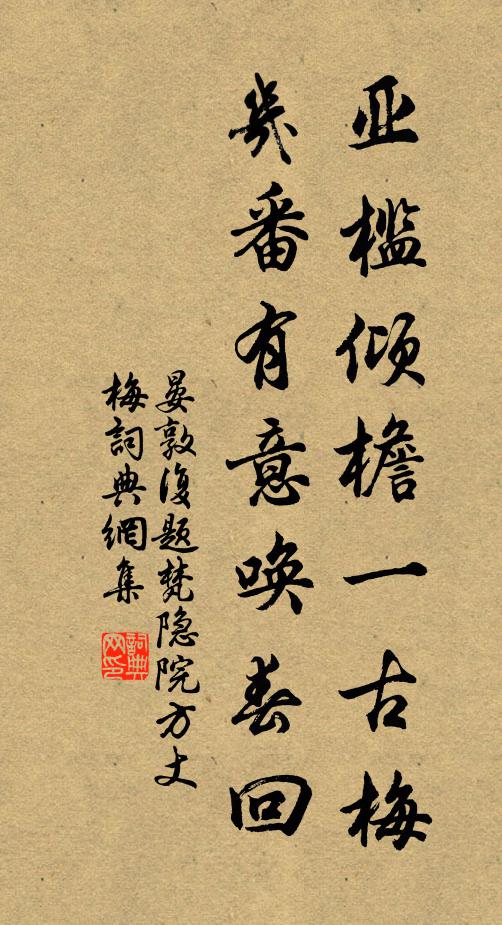 亚槛倾檐一古梅
几番有意唤春回
晏敦复题梵隐院方丈
梅詞典網集
詞典网印